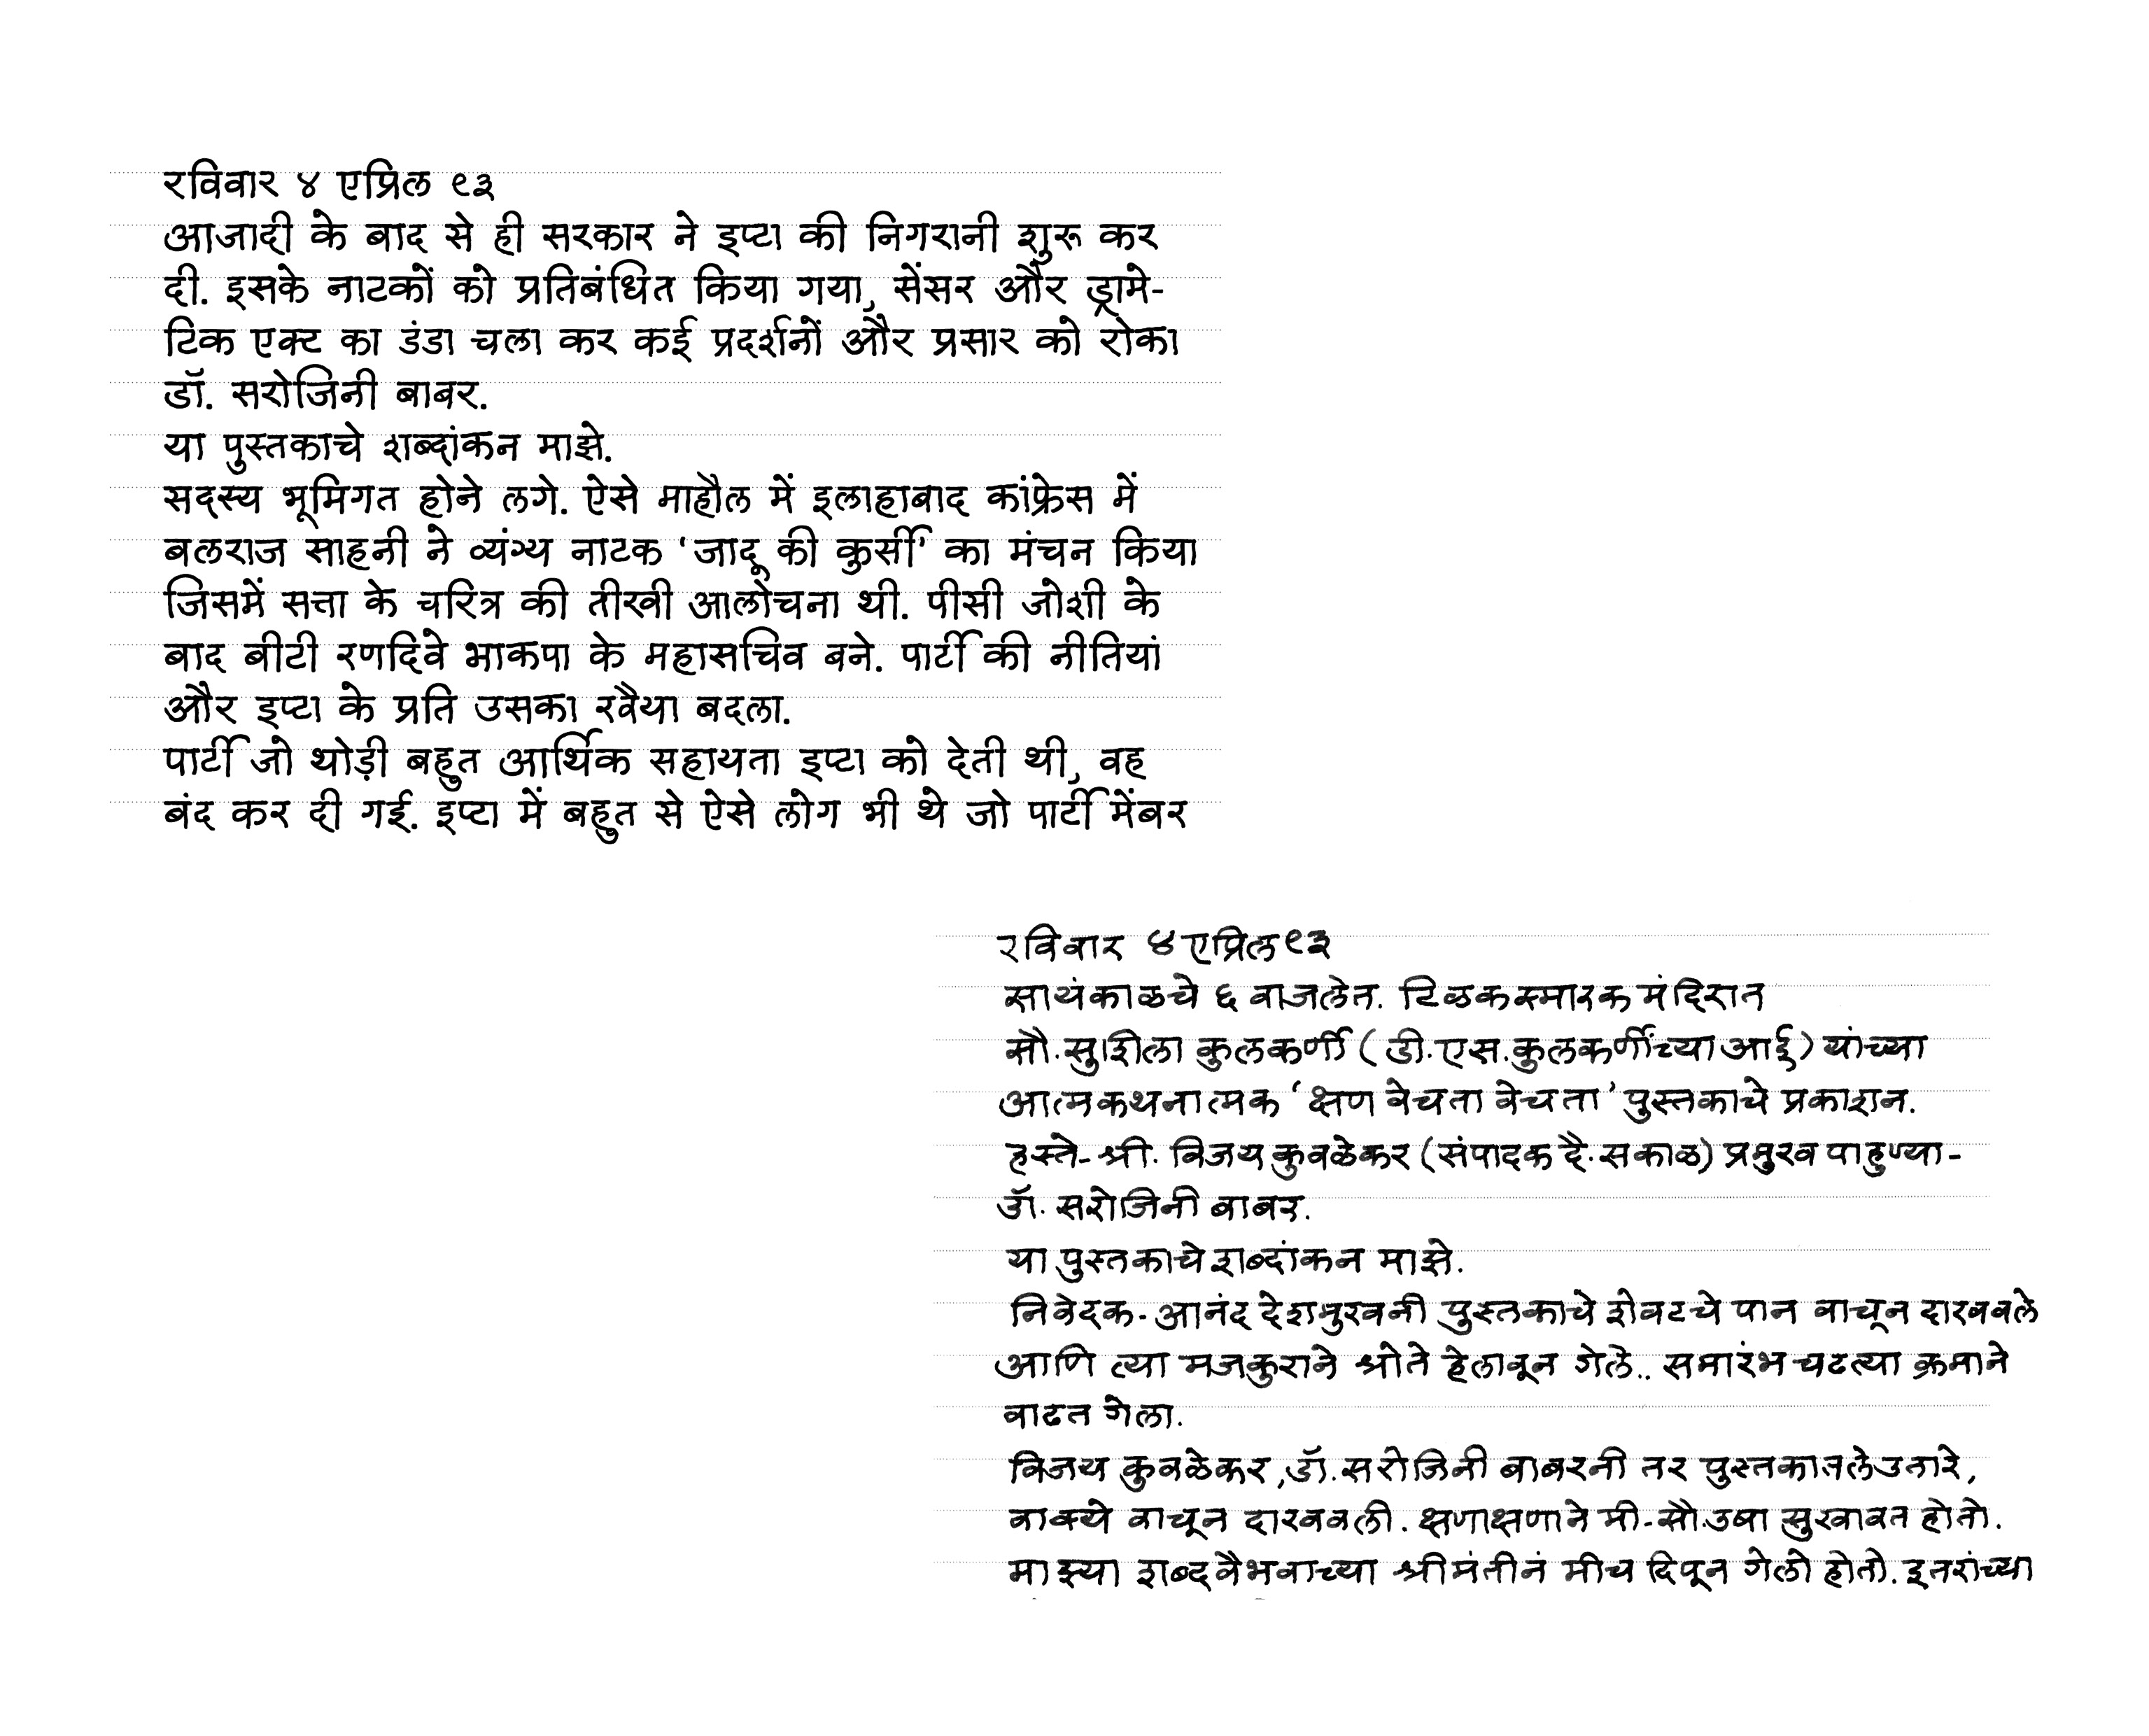 रविवार ४ एप्रिल ९३
आजादी के बाद से ही सरकार ने इप्टा की निगरानी शुरू कर
दी. इसके नाटकों को प्रतिबंधित किया गया, सेंसर और ड्रामे-
टिक एक्ट का डंडा चला कर कई प्रदर्शनों और प्रसार को रोका
डॉ. सरोजिनी बाबर.
या पुस्तकाचे शब्दांकन माझे.
सदस्य भूमिगत होने लगे. ऐसे माहौल में इलाहाबाद कांफ्रेस में
बलराज साहनी ने व्यंग्य नाटक ‘जादू की कुर्सी’ का मंचन किया
जिसमें सत्ता के चरित्र की तीखी आलोचना थी. पीसी जोशी के
बाद बीटी रणदिवे भाकपा के महासचिव बने. पार्टी की नीतियां
और इप्टा के प्रति उसका रवैया बदला.
पार्टी जो थोड़ी बहुत आर्थिक सहायता इप्टा को देती थी, वह
बंद कर दी गई. इप्टा में बहुत से ऐसे लोग भी थे जो पार्टी मेंबर
रविवार ४ एप्रिल ९३
सायंकाळचे ६ वाजलेत. टिळक स्मारक मंदिरात
सौ. सुशिला कुलकर्णी (डी. एस. कुलकर्णींच्या आई) यांच्या
आत्मकथनात्मक ‘क्षण वेचता वेचता’ पुस्तकाचे प्रकाशन.
हस्ते- श्री. विजय कुवळेकर (संपादक दै. सकाळ) प्रमुख पाहुण्या-
डॉ. सरोजिनी बाबर.
या पुस्तकाचे शब्दांकन माझे.
निवेदक- आनंद देशमुखनी पुस्तकाचे शेवटचे पान वाचून दाखवले
आणि त्या मजकुराने श्रोते हेलावून गेले.. समारंभ चढत्या क्रमाने
वाढत गेला.
विजय कुवळेकर, डॉ. सरोजिनी बाबरनी तर पुस्तकातले उतारे,
वाक्ये वाचून दाखवली. क्षणाक्षणाने मी- सौ. उषा सुखावत होतो.
माझ्या शब्दवैभवाच्या श्रीमंतीनं मीच दिपून गेलो होतो. इतरांच्या